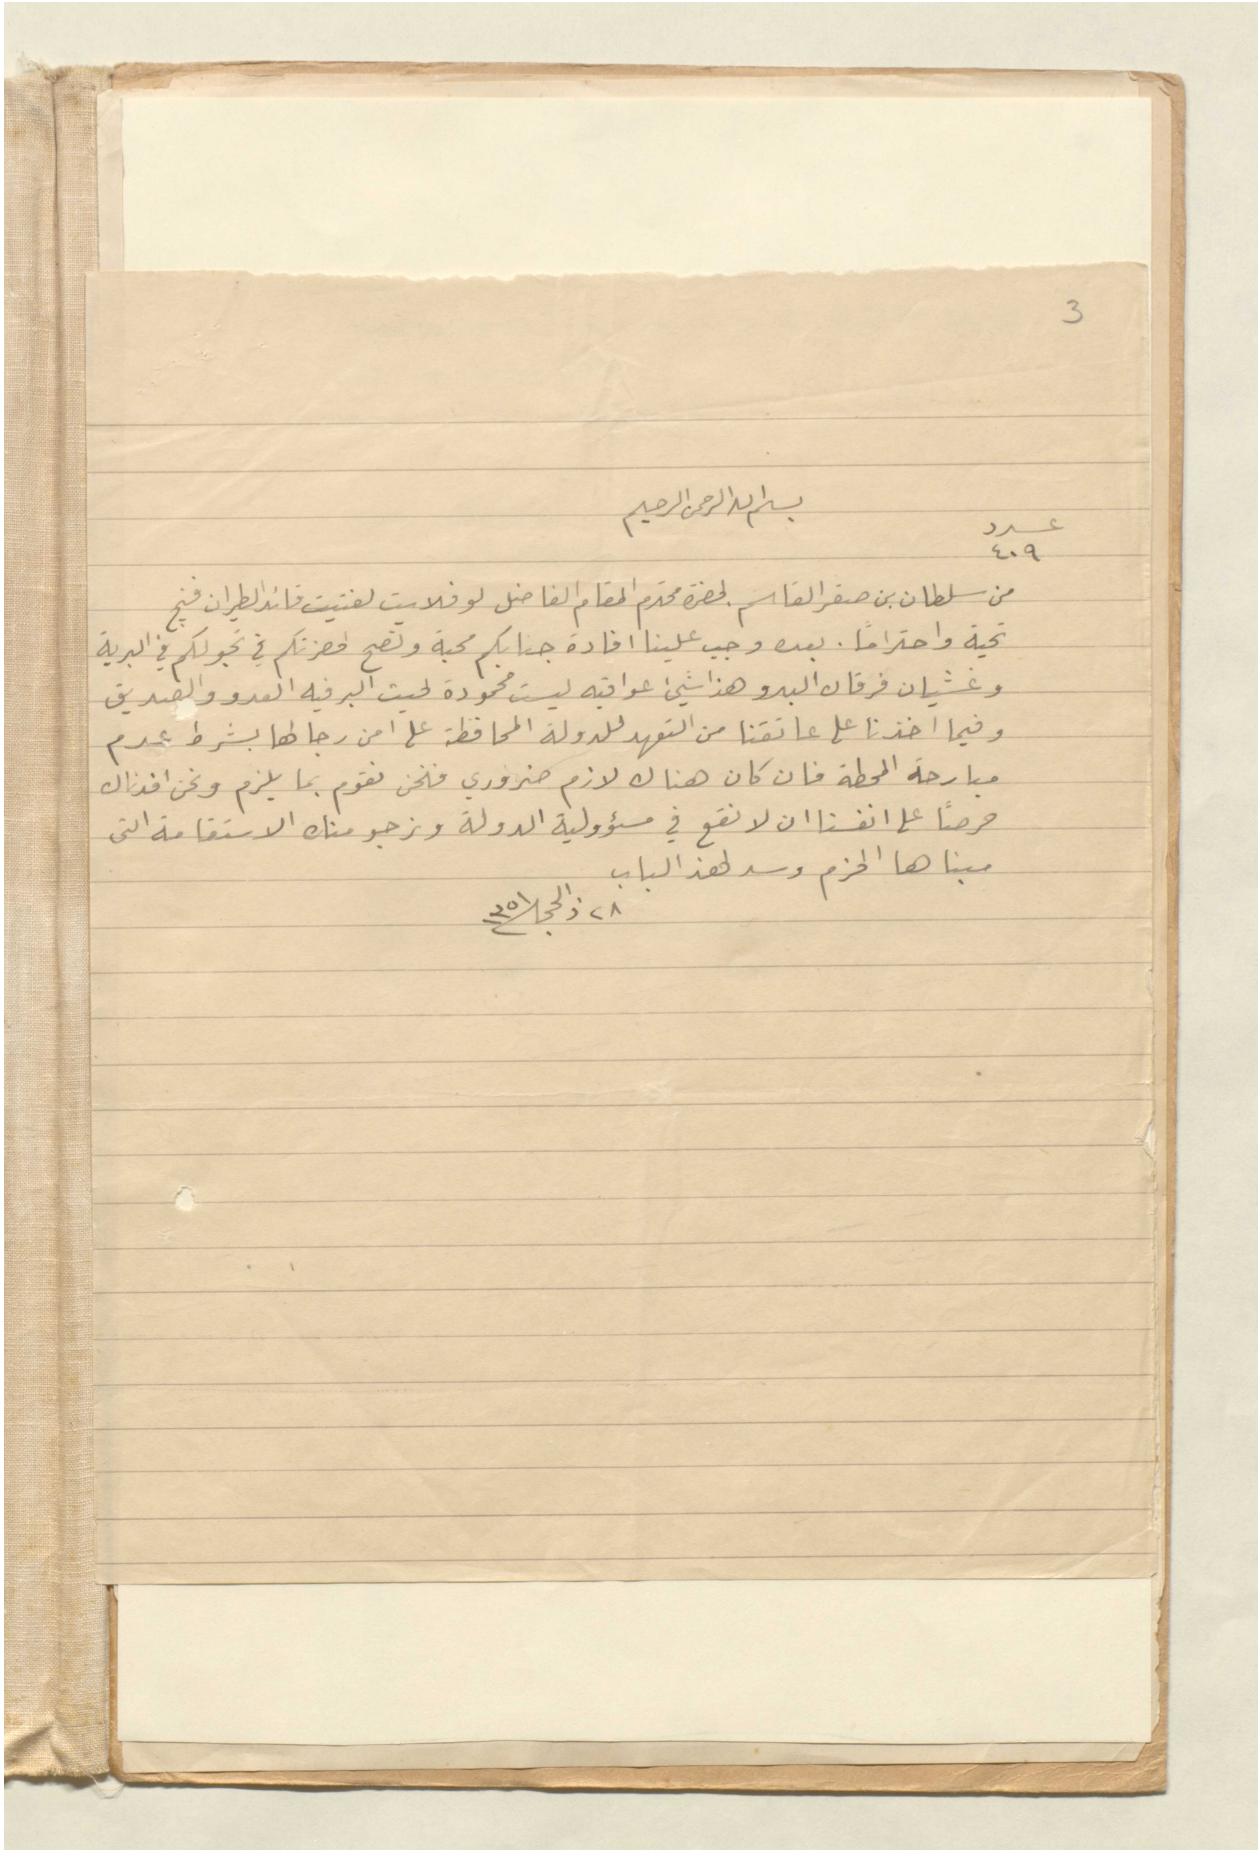 3
بسم الله الرحمن الرحيم
عدد
٤٠٩
من سلطان بن صقر القاسمي لحضرة محترم المقام الفاضل لوفلايت لفتيت قائد الطيران فنج
تحية واحتراماً. بعده وجب علينا افادة جنابكم محبة ونصح لحضرتكم في تجولكم في البرية
وغشيان فرقان البدو هذا شيئ عواقبه ليست محمودة لحيث البر فيه العدو والصديق
وفيما اخذنا على عاتقنا من التعهد للدولة المحافظة على امن رجالها بشرط عدم
مبارحة المحطة فان كان هناك لازم ضروري فنحن نقوم بما يلزم ونحن افدناك
حرصًا على انفسنا ان لا نقع في مسؤولية الدولة ونرجو منك الاستقامة التى
مبناها الحزم وسد لهذ الباب
٢٨ ذالحجه ١٣٥١